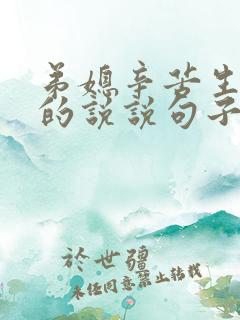 弟媳辛苦生
的説説句子
於世疆
未経同意禁止转载